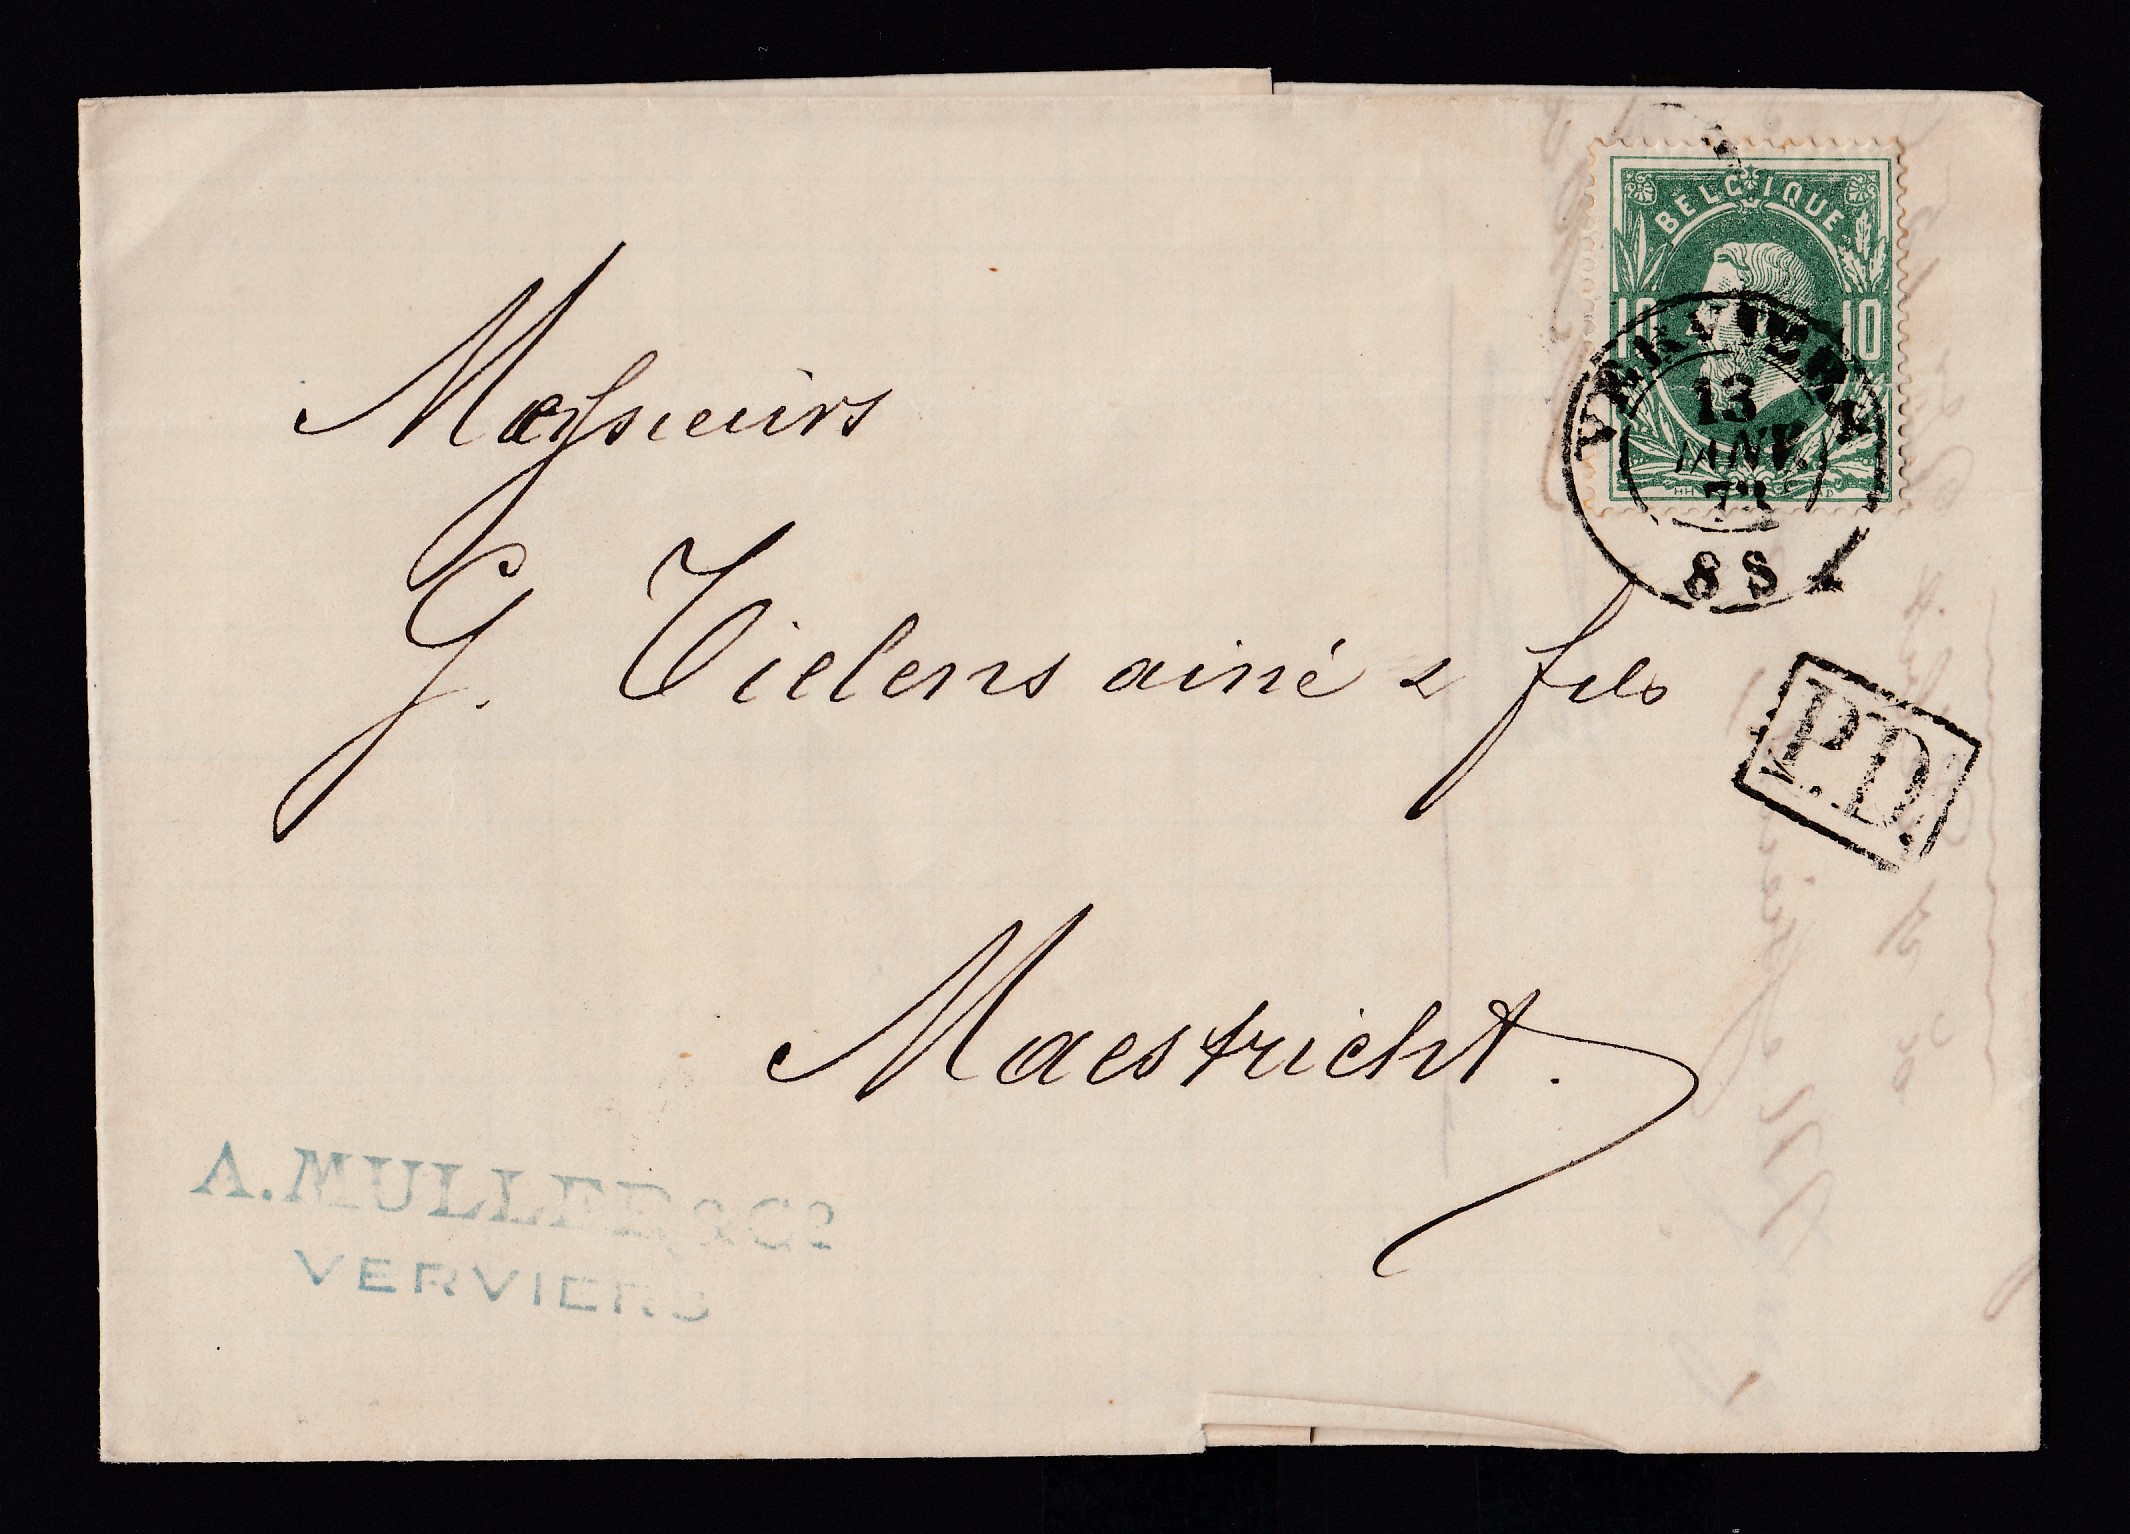 BELGIQUE
10 10
VERVIERS
13
JANV.
8 S
Messieurs
G. Tielens ainé & fils
P.D.
Maestricht.
A. MULLER & Cº
VERVIERS